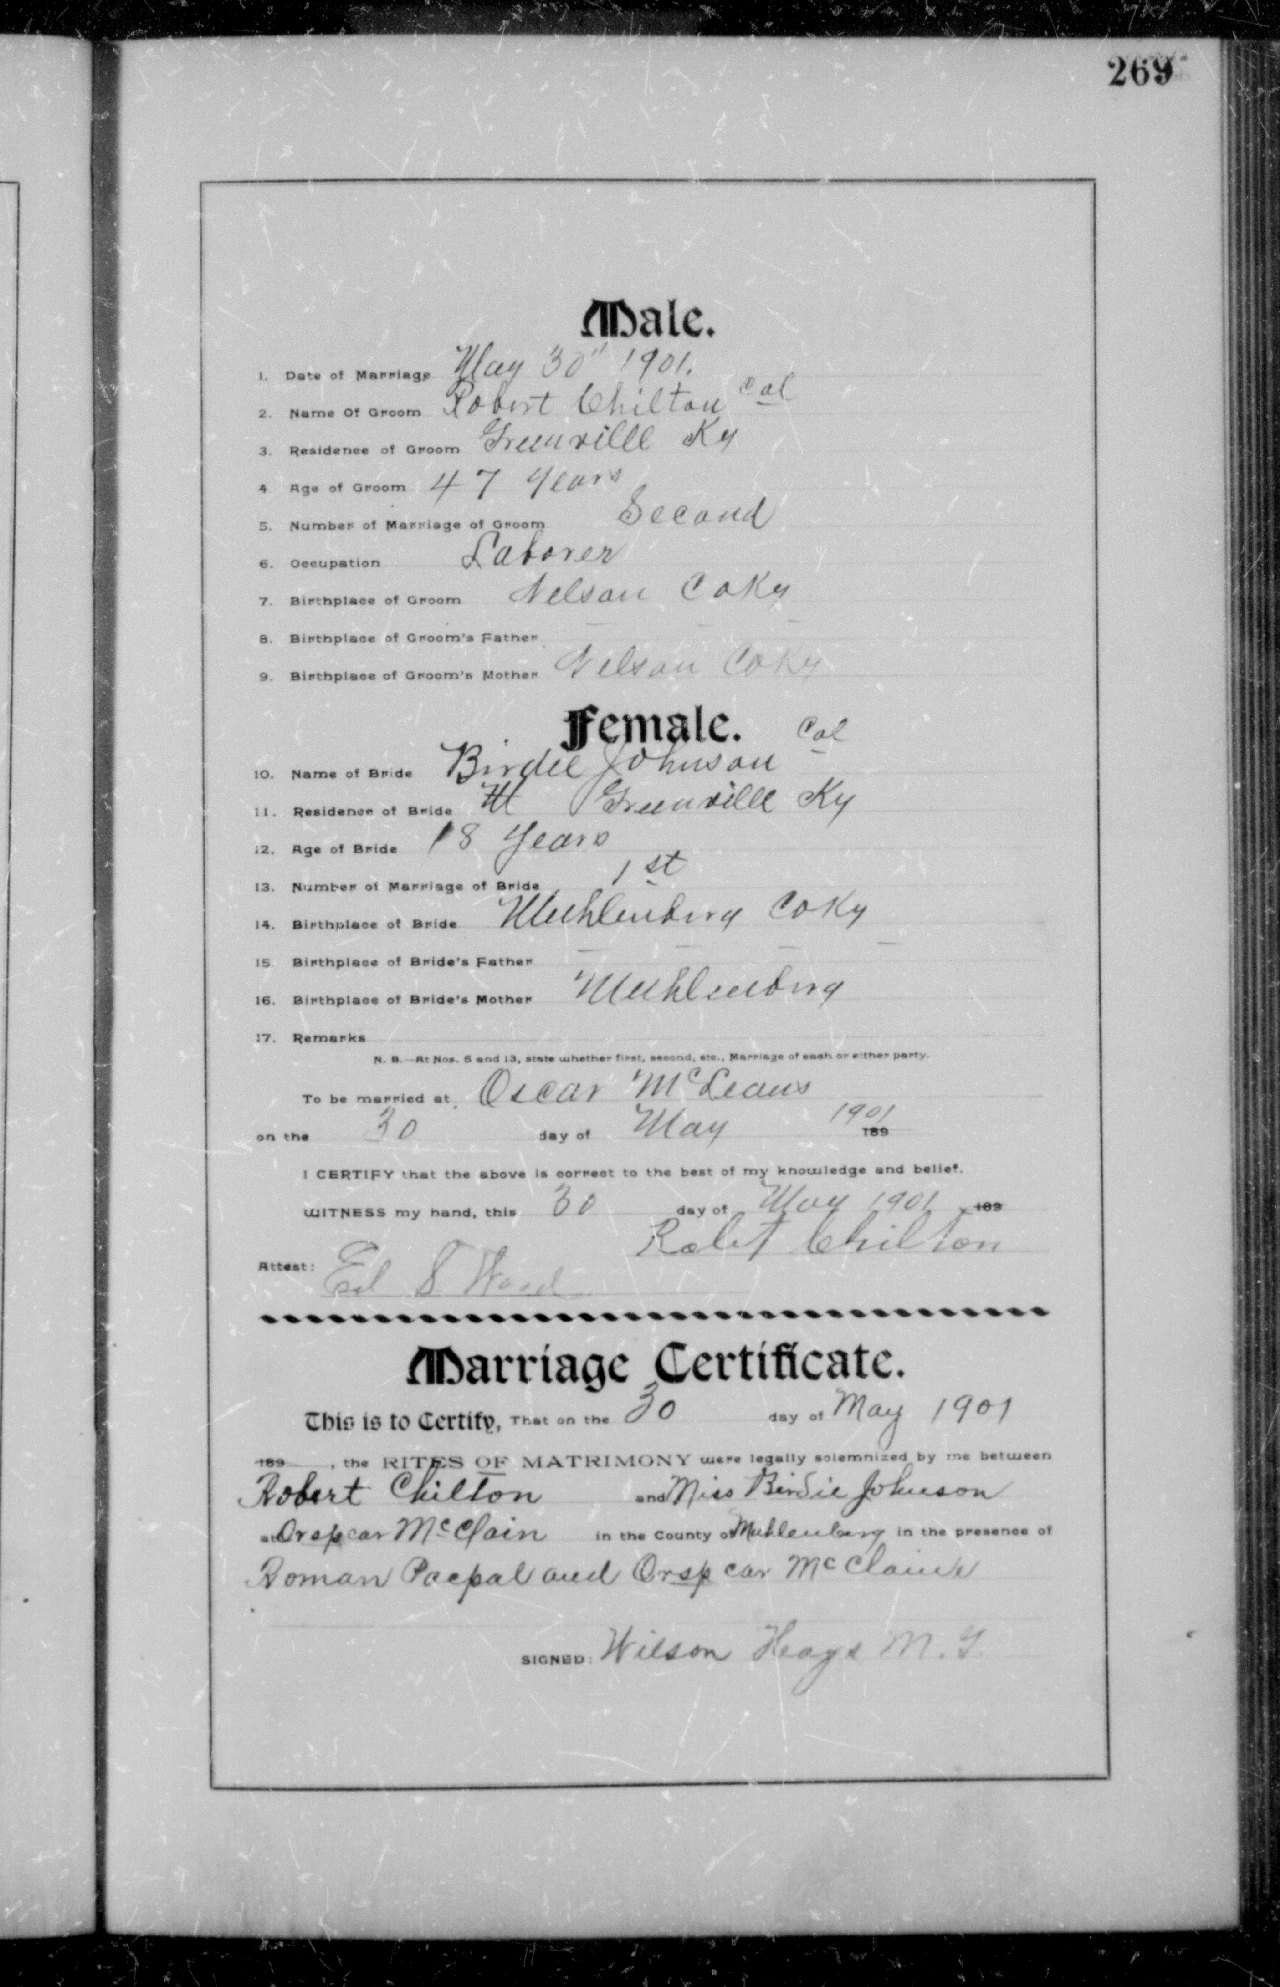 269
Male.
1. Date of Marriage May 30" 1901.
2. Name Of Groom Robert Chilton Col
3. Residence of Groom Greenville Ky
4 Age of Groom 47 Years
5. Number of Marriage of Groom Second
6. Occupation Laborer
7. Birthplace of Groom Nelson Co Ky
8. Birthplace of Groom's Father — — —
9. Birthplace of Groom's Mother Nelson Co Ky
Female. Col
10. Name of Bride Birdie Johnson
11. Residence of Bride Greenville Ky
12. Age of Bride 18 Years
13. Number of Marriage of Bride 1st
14. Birthplace of Bride Muhlenberg Co Ky
15 Birthplace of Bride's Father — — — —
16. Birthplace of Bride's Mother Muhlenberg
17. Remarks
N. B.—At Nos. 5 and 13, state whether first, second, etc., Marriage of each or either party.
To be married at Oscar McLeans
on the 30 day of May 1901 189
I CERTIFY that the above is correct to the best of my knowledge and belief.
WITNESS my hand, this 30 day of May 1901 189
Robt Chilton
Attest: Ed S Wood
Marriage Certificate.
This is to Certify, That on the 30 day of May 1901
189 , the RITES OF MATRIMONY were legally solemnized by me between
Robert Chilton and Miss Birdie Johnson
at Orspcar McClain in the County of Muhlenberg in the presence of
Roman Pacpal and Orspcar McClain
SIGNED: Wilson Hays M. G.